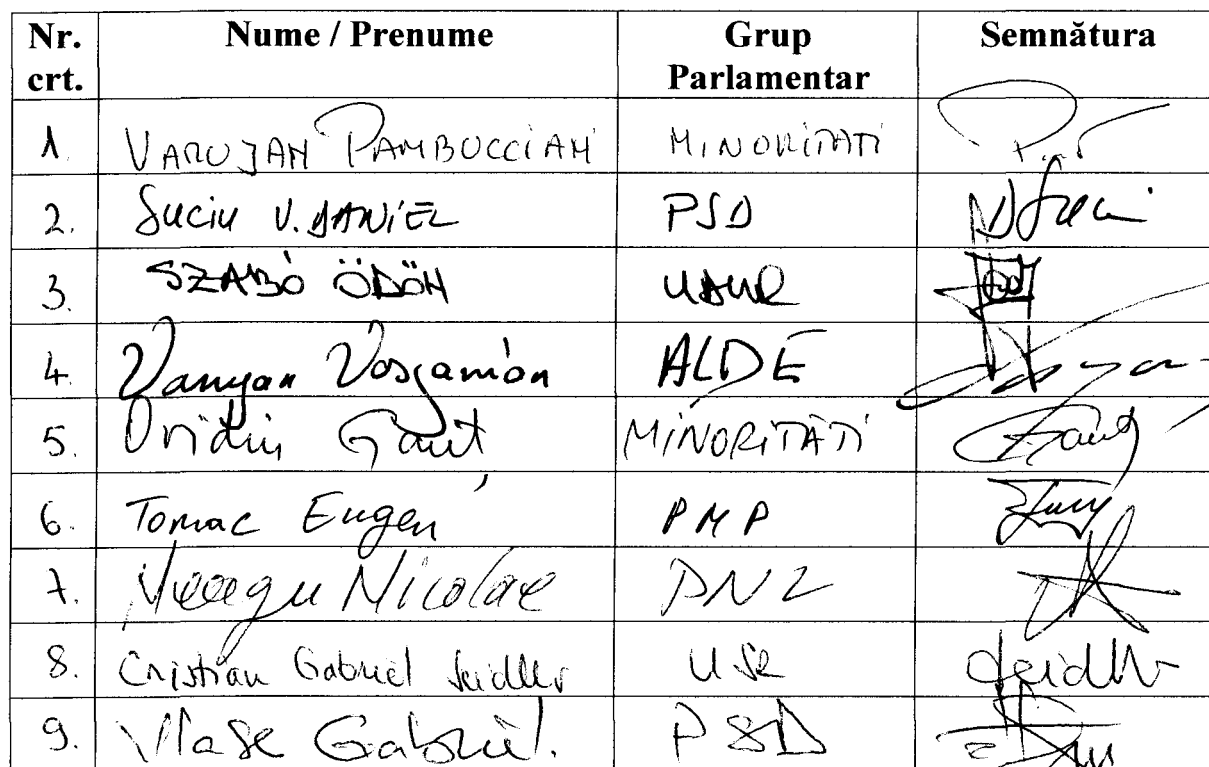 Nr. crt. Nume / Prenume Grup Parlamentar Semnătura
1. VARUJAN PAMBUCCIAN MINORITATI
2. Suciu V. DANIEL PSD
3. SZABÓ ÖDÖN UDMR
4. Varujan Vosganian ALDE
5. Ovidiu Gant MINORITĂTI
6. Tomac Eugen PMP
7. Neagu Nicolae PNL
8. Cristian Gabriel Seidler USR Seidler
9. Vlase Gabriel. PSD